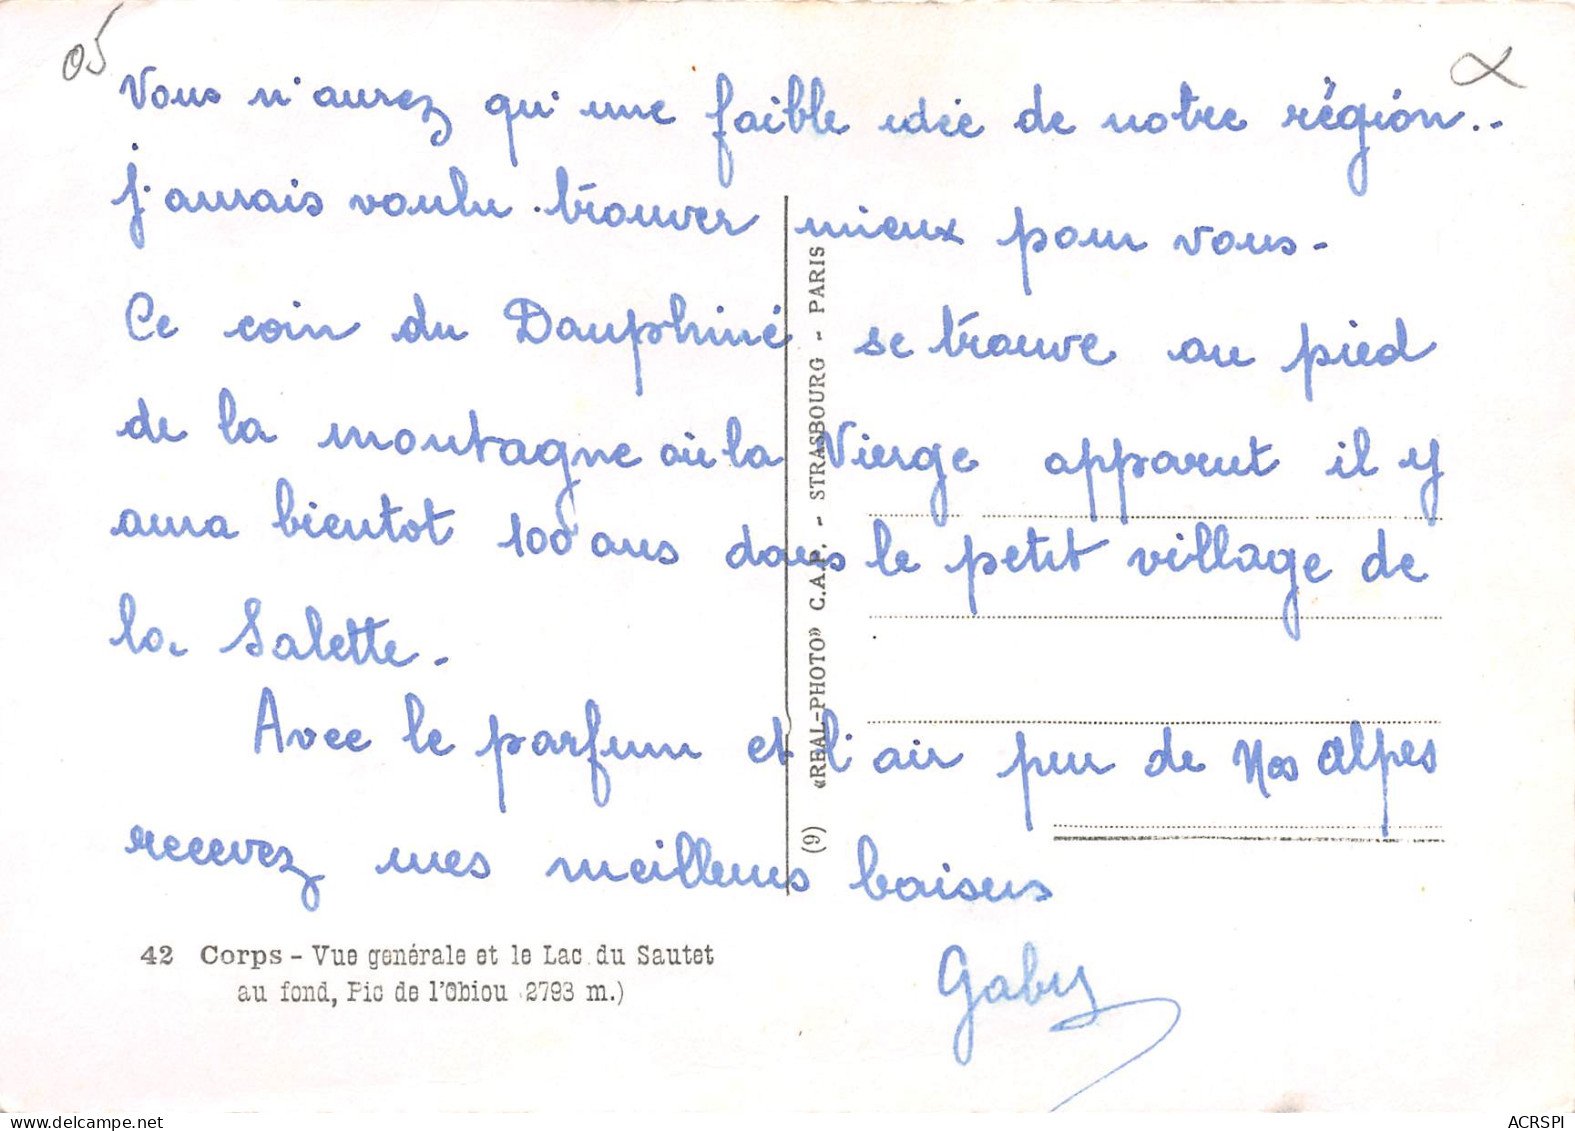 05
Vous n'aurez qu'une faible idée de notre région..
j'aurais voulu trouver mieux pour vous-
Ce coin du Dauphiné se trouve au pied
de la montagne où la Vierge apparut il y
aura bientot 100 ans dans le petit village de
la Salette-
Avec le parfum et l'air pur de Nos alpes
recevez mes meilleurs baisers
Gaby
42 Corps - Vue générale et le Lac du Sautet
au fond, Pic de l'Obiou 2793 m.)
(9) «REAL-PHOTO» C.A.P. - STRASBOURG - PARIS
ACRSPI